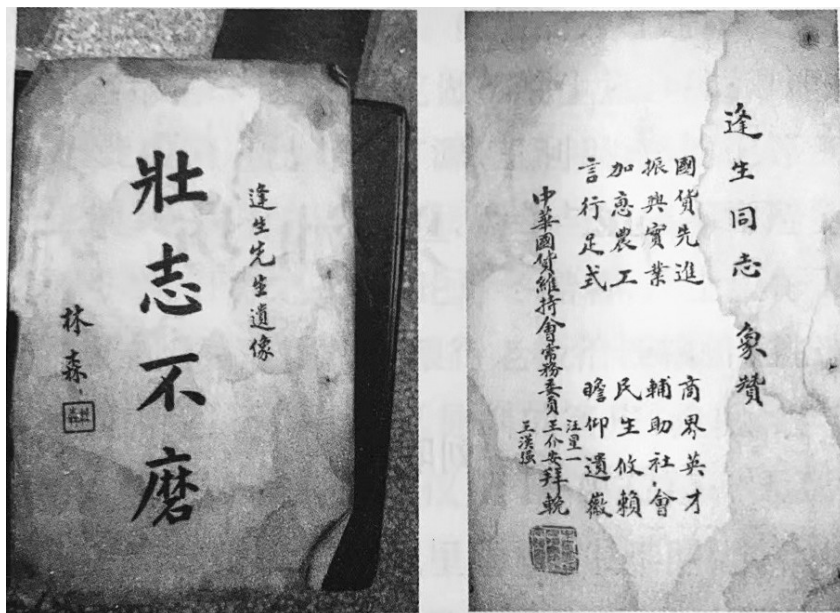 逢生先生遺像
壯志不磨
林森
逢生同志 象贊
國貨先進 商界英才
振興實業 輔助社會
加惠農工 民生攸賴
言行足式 瞻仰遺徽
中華國貨維持會常務委員
汪星一
王介安拜輓
王漢强